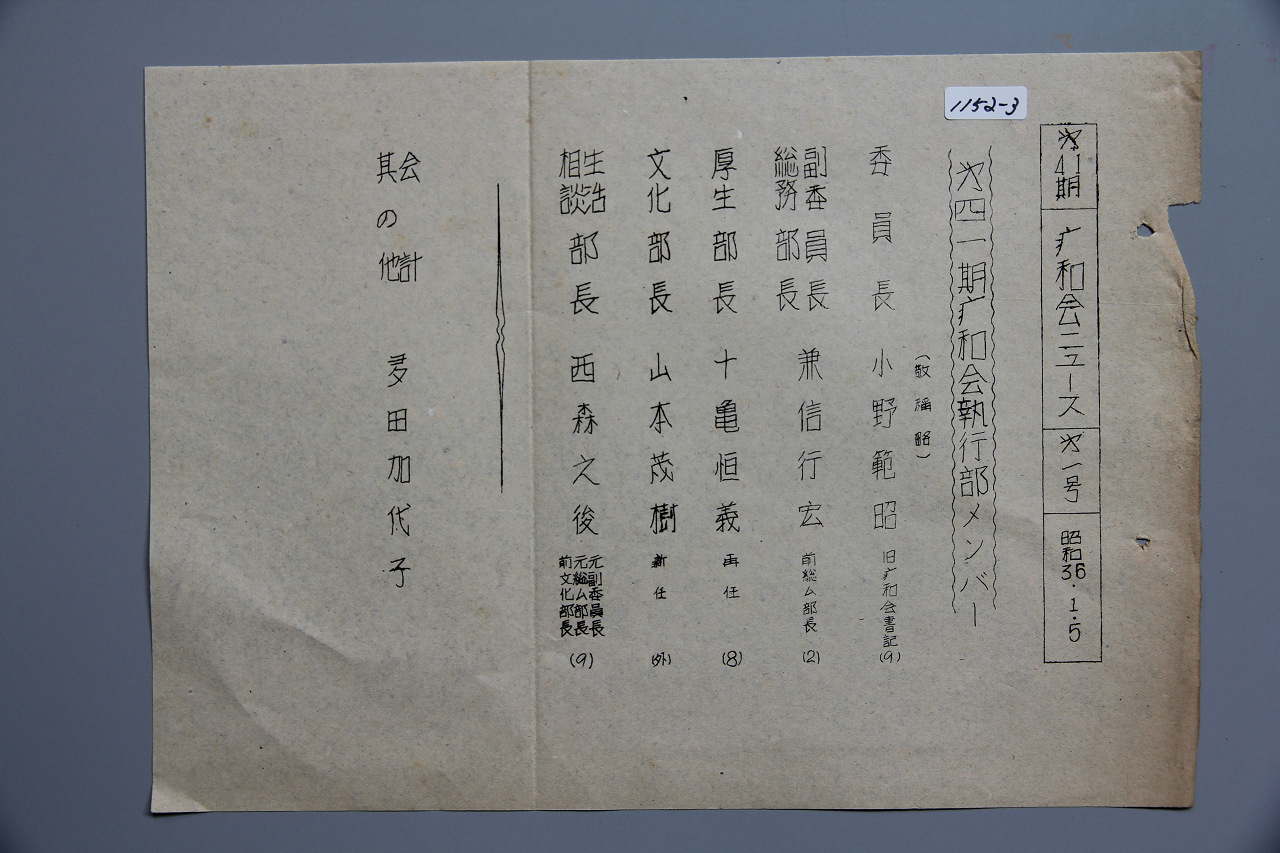 1152-3
才41期 疒和会ニュース 才一号 昭和36・1・5
才四一期疒和会執行部メンバー
(敬稱略)
委員長 小野範昭 旧疒和会書記 (9)
副委員長
総務部長 兼信行宏 前総ム部長 (2)
厚生部長 十亀恒義 再任 (8)
文化部長 山本茂樹 新任 (外)
生活相談部長 西森之後 元副委員長 元総ム部長 前文化部長 (9)
会計
其の他 多田加代子